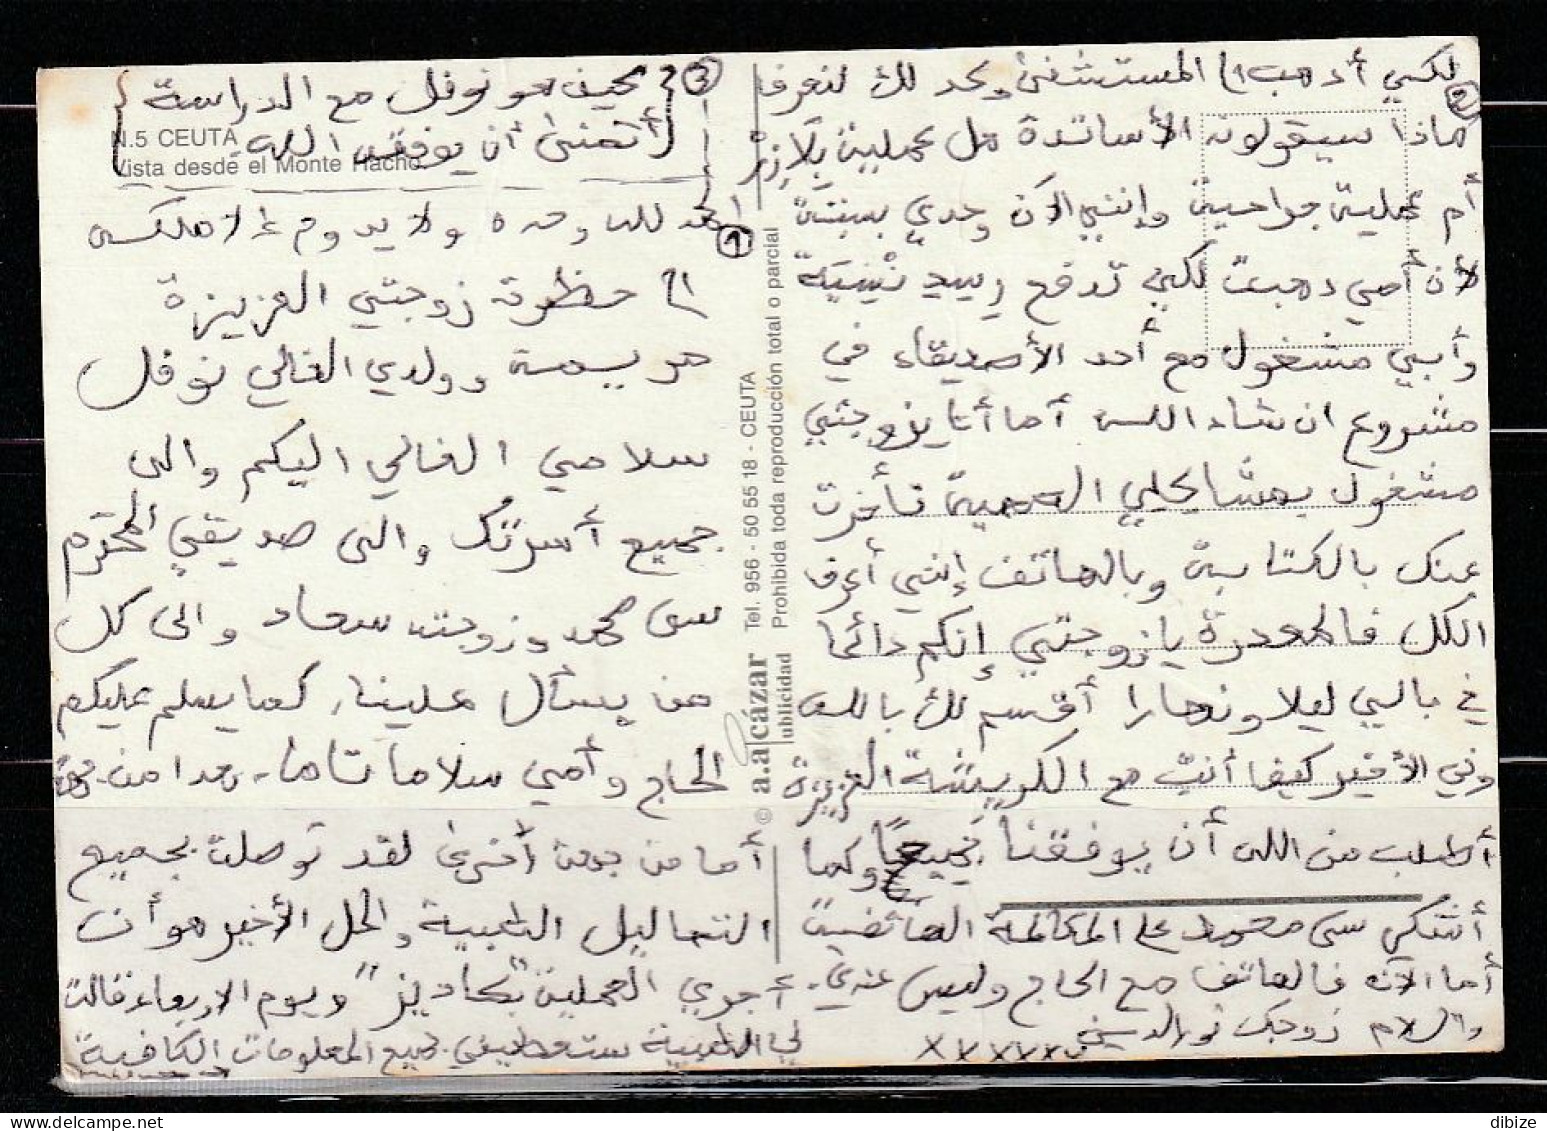 الحمد لله وحده ولا يدوم إلا ملكه
إلى حظرة زوجتي العزيزة
حريسة وولدي الغالي نوفل
سلامي الغالي اليكم والى
جميع أسرتك والى صديقي المحترم
سي محمد وزوجته سعاد والى كل
من يسأل علينا، كما يسلم عليكم
الحاج وأمي سلاما تاما، هدا من جهة
أما من جهة أخرى لقد توصلت بجميع
التحاليل الطبية والحل الأخير هو أن
أجري العملية " ويوم الاربعاء قالت
لي الطبيبة ستعطيني جميع المعلومات الكافية
لكي أدهب إلى المستشفى وبعد لك لنعرف
ماذا سيقولون الأساتدة هل عملية بلازر
أم عملية جراحية وإنني الآن وحدي بسبتة
لأن أمي دهبت لكي تدفع
وأبي مشغول مع أحد الأصديقاء في
مشروع ان شاء الله أما أنا يزوجتي
مشغول بمشاكلي الصحية تأخرت
عنك بالكتابة وبالهاتف إنني أعرف
الكل فالمعدرة يا زوجتي إنكم دائما
في بالي ليلا ونهارا أقسم لك بالله
وفي الأخير كيف أنت مع الكريشة العزيزة
أطلب من الله أن يوفقنا جميعا وكما
أشكر سي محمد على المكالمة الهاتفية
أما الآن فالهاتف مع الحاج وليس عندي.
والسلام زوجك نور الدين
xxxxxx
كيف هو نوفل مع الدراسة
أتمنى أن يوفقه الله.
1
2
3
N.5 CEUTA
Vista desde el Monte Hacho
© a.alcázar
publicidad
Tel. 956 - 50 55 18 - CEUTA
Prohibida toda reproducción total o parcial
dibize